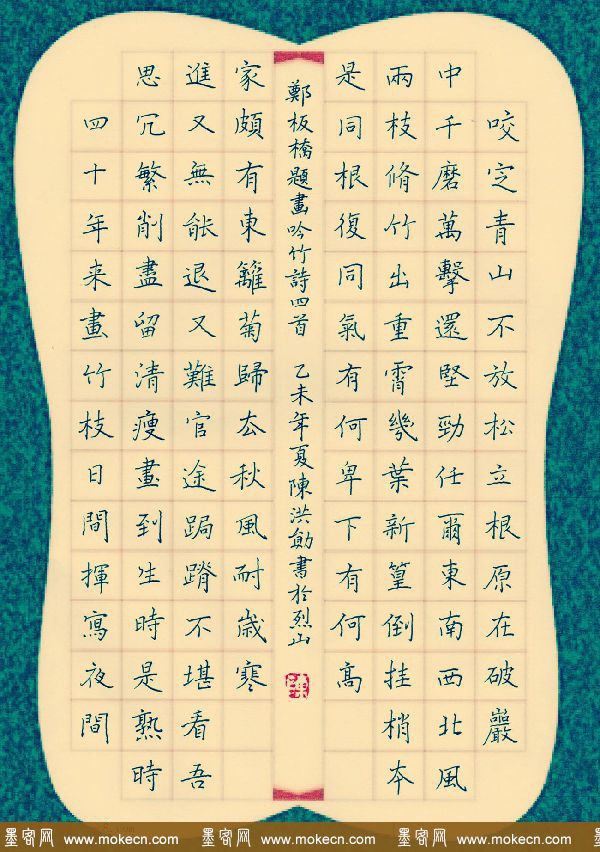 咬定青山不放松立根原在破巖
中千磨萬擊還堅勁任爾東南西北風
兩枝脩竹出重霄幾葉新篁倒挂梢本
是同根復同氣有何卑下有何高
四十年来畫竹枝日間揮寫夜間
思冗繁削盡留清瘦畫到生時是熟時
進又無能退又難官途跼蹐不堪看吾
家頗有東籬菊歸厺秋風耐歲寒
鄭板橋題畫吟竹詩四首 乙未年夏陳洪書於烈山
墨客网 www.mokecn.com 墨客网 www.mokecn.com 墨客网 www.mokecn.com